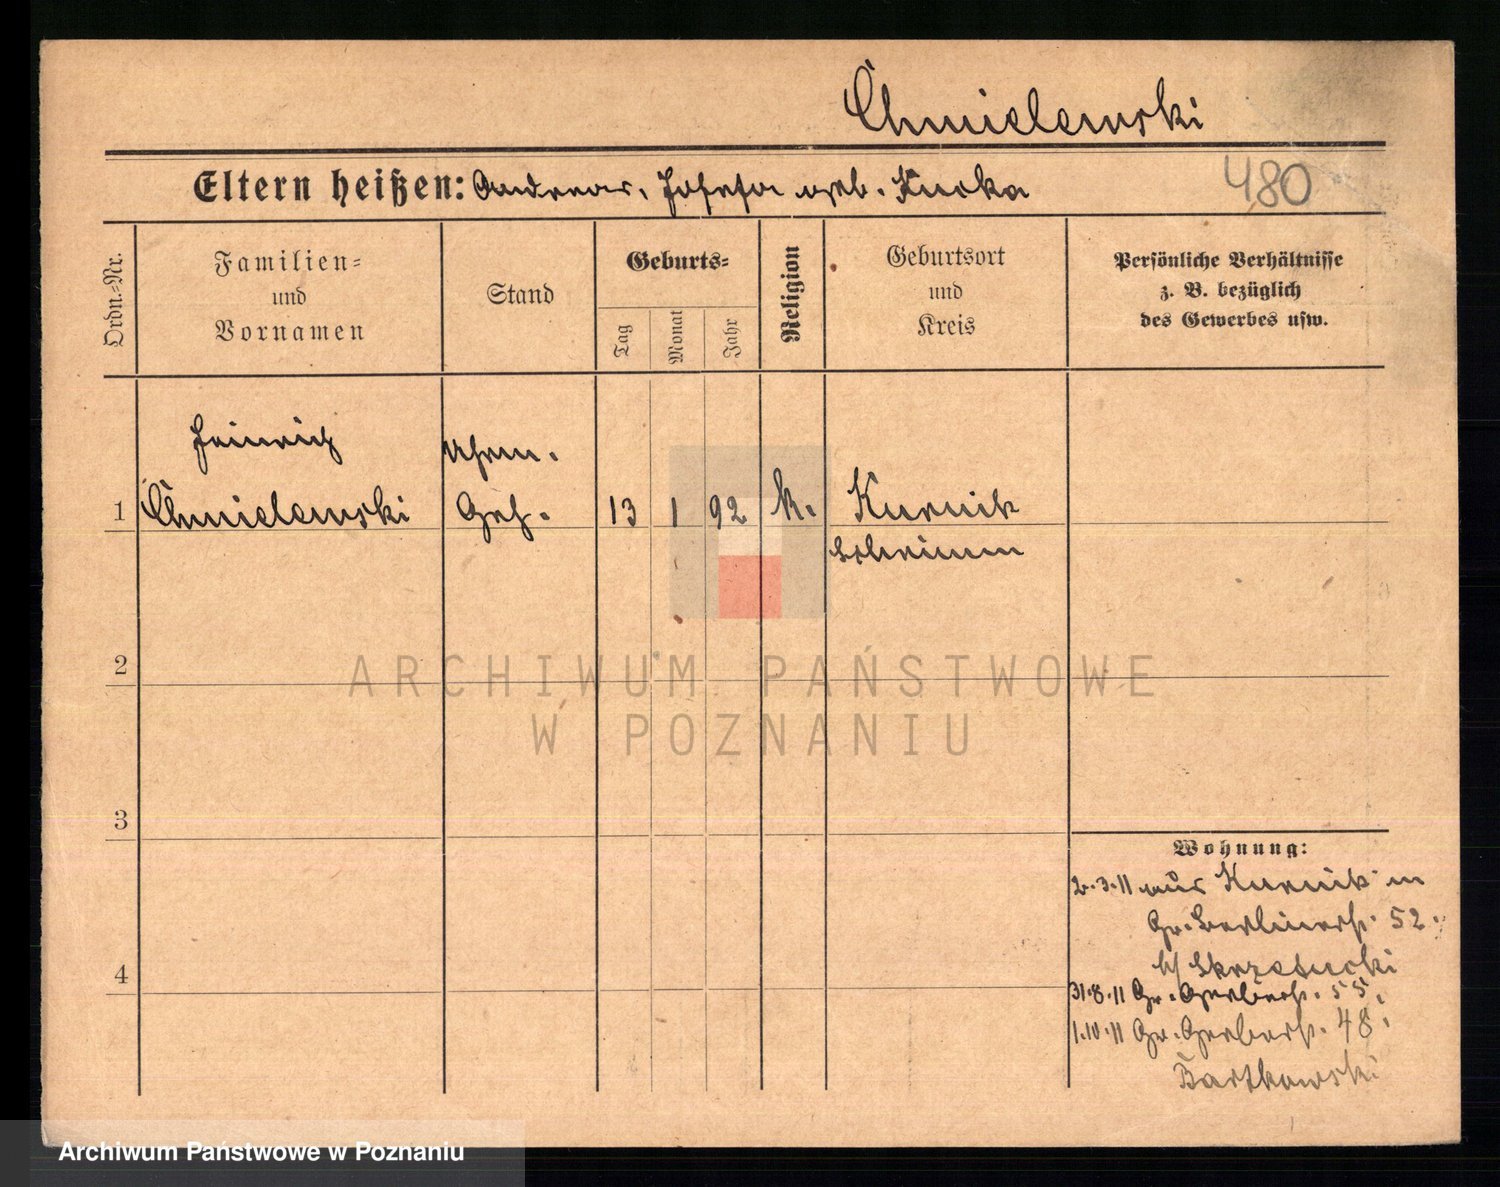 Chmielewski
Eltern heißen: Andreas, Josefa geb. Kurka
480
Ordn.-Nr.
Familien-
und
Vornamen
Stand
Geburts-
Tag
Monat
Jahr
Religion
Geburtsort
und
Kreis
Persönliche Verhältnisse
z. B. bezüglich
des Gewerbes usw.
Heinrich
Uhrm.
1 Chmielewski Geh. 13 1 92 k. Kurnik
Schrimm
2
3
4
Wohnung:
2.3.11 aus Kurnik in
Gr. Berlinerst. 52.
b/ Skrzetucki
31.8.11 Gr. Gerberst. 55.
1.10.11 Gr. Gerberst. 48.
Bartkowski
ARCHIWUM PAŃSTWOWE
W POZNANIU
Archiwum Państwowe w Poznaniu